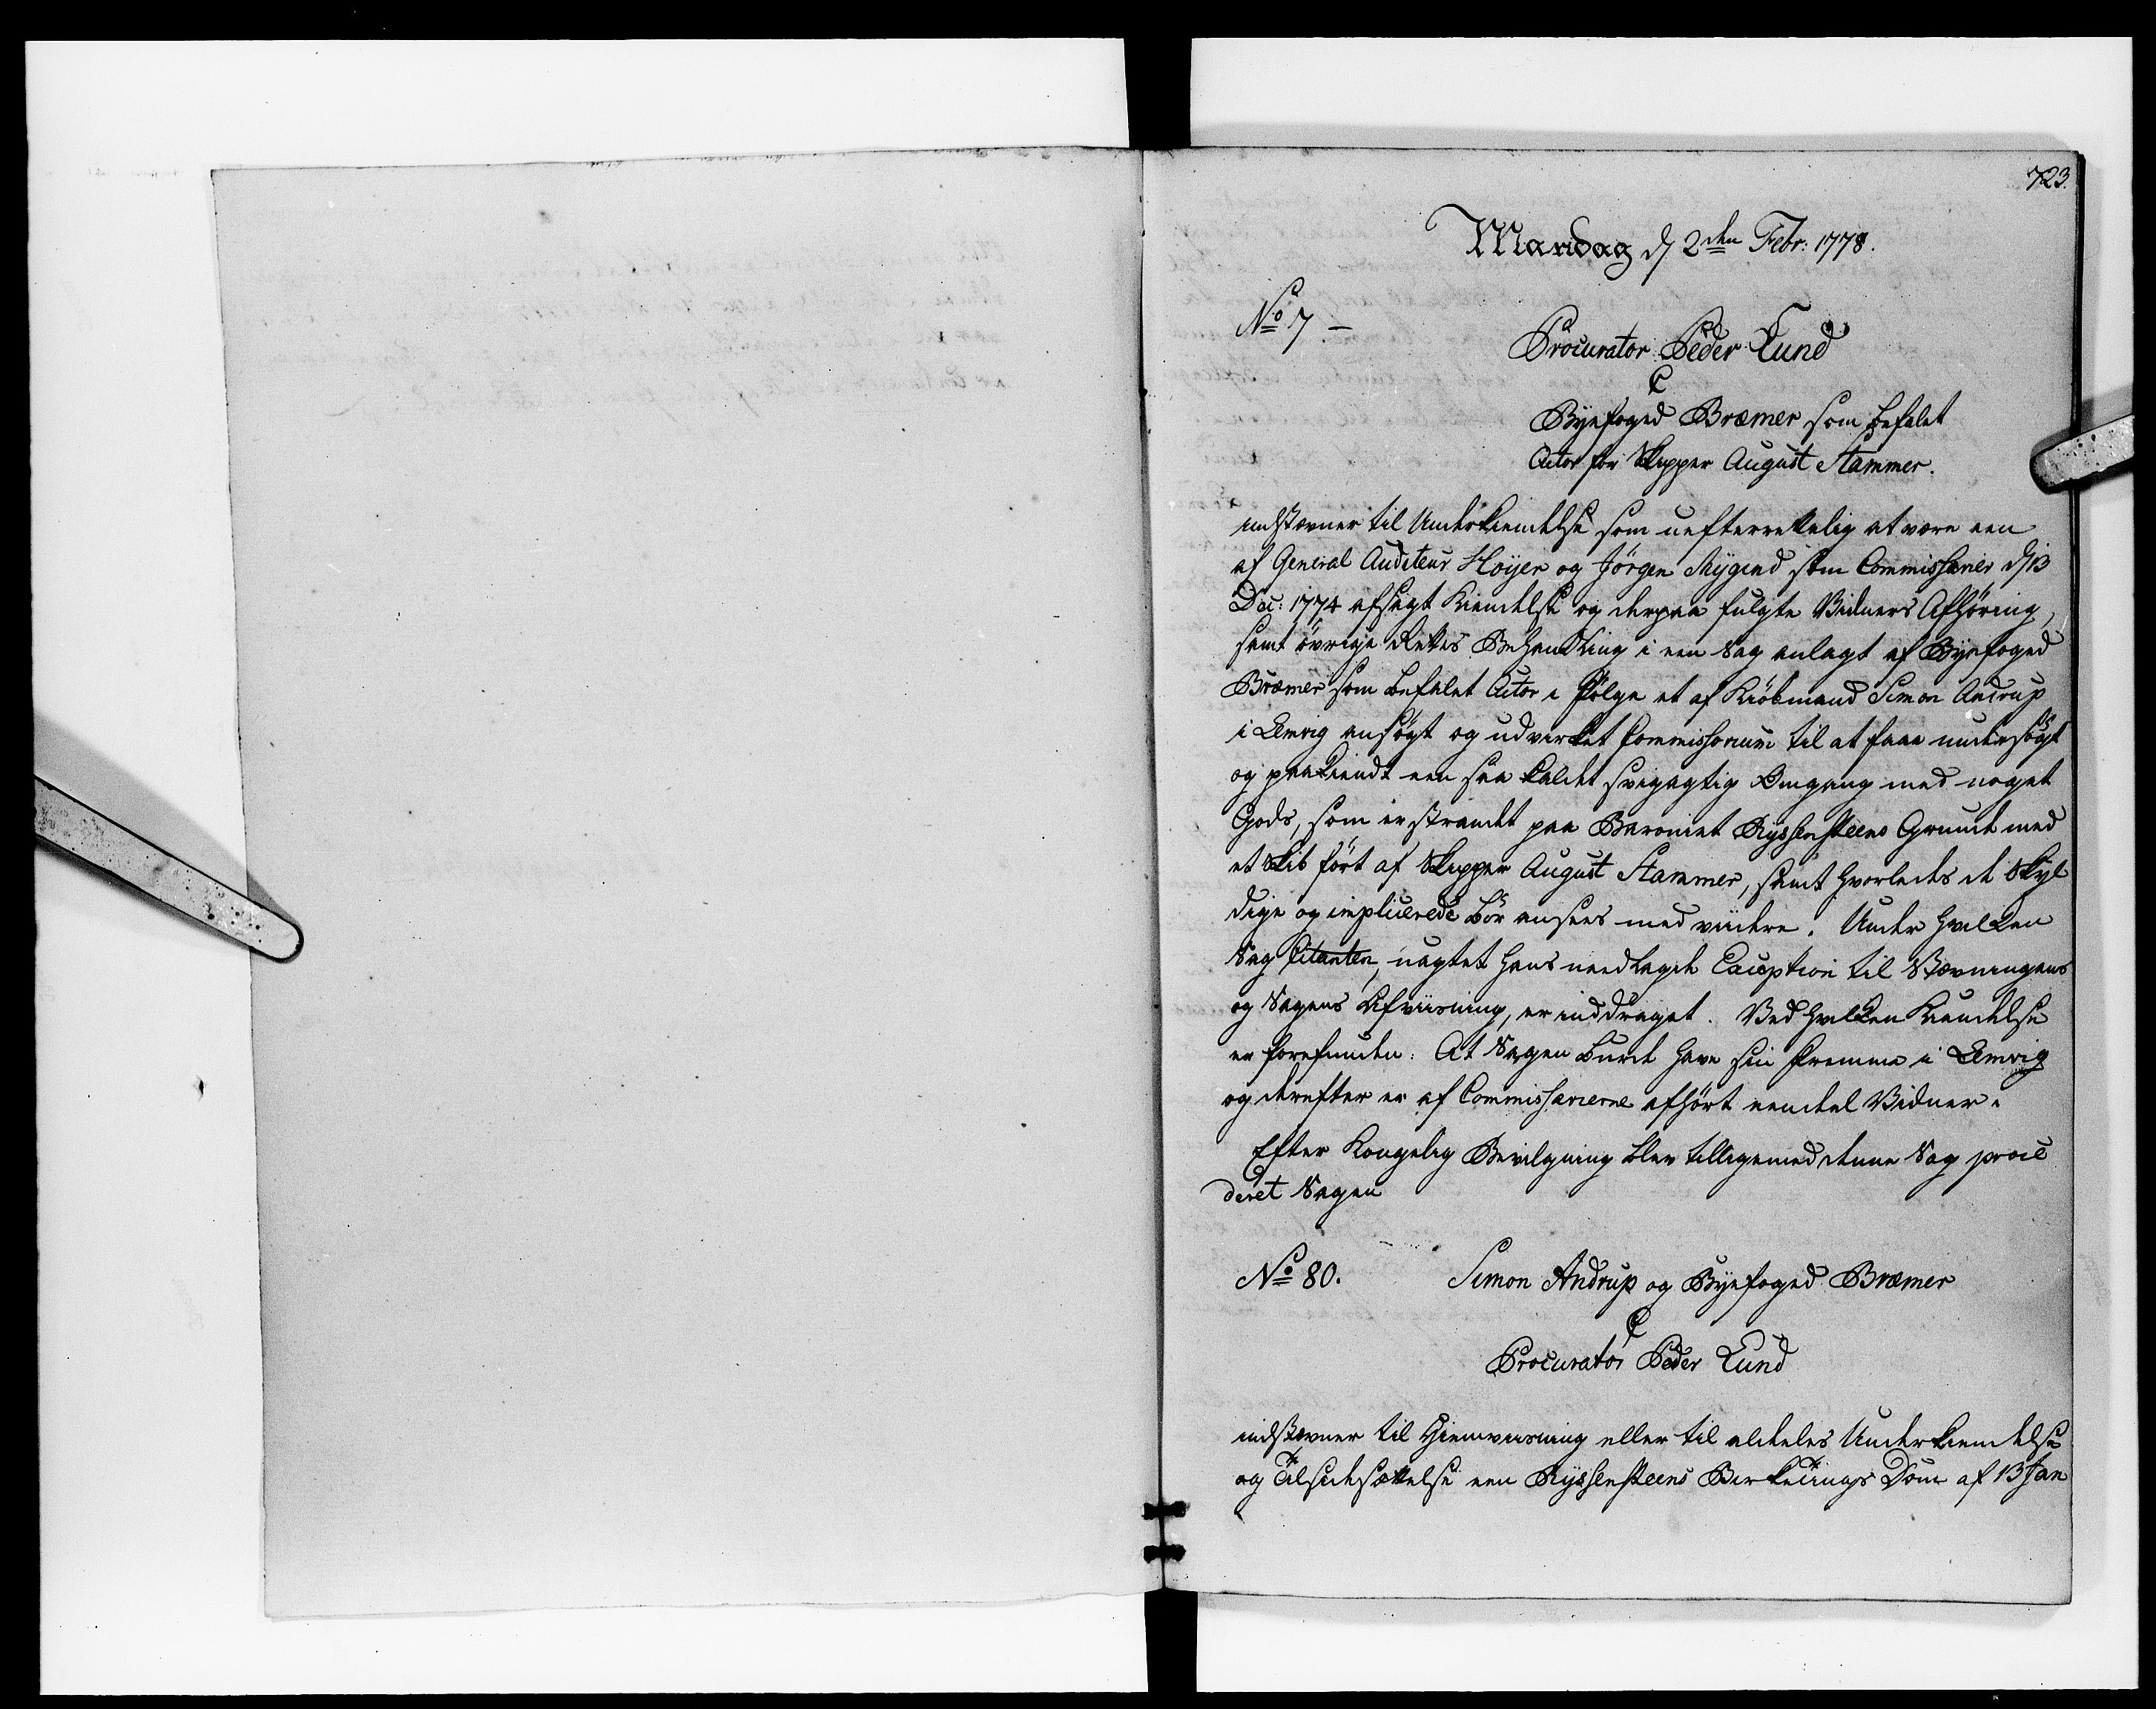 723.
Mandag d 2den Febr: 1778.
No 7 –
Procurator Peder Lund
C
Byefoged Bræmer som befalet
Actor for Skipper August Stammer.
indstævner til Underkiendelse som uefterrettelig at være een
af General Auditeur Höyer og Jörgen Mygind som Commissarier d 13
Dec: 1774 afsagt Kiendelse og derpaa fulgte Vidners Afhöring,
samt övrige Rettes Behandling i een Sag anlagt af Byefoged
Bræmer som befalet Actor i Fölge et af Kiöbmand Simon Andrup
i Lemvig ansögt og udvirket Commissorium til at faae undersögt
og paakiendt een saa kaldet svigagtig Omgang med noget
Gods, som er strandet paa Baroniet Ryssensteens Grund med
et Skib fört af Skipper August Stammer, samt hvorledes de Skyl
dige og implicerede bör ansees med viidere. Under hvilken
Sag Citanten, uagtet hans nedlagde Exception til Stævningens
og Sagens Afviisning, er inddraget. Ved hvilken Kiendelse
er forefunden: At Sagen burde have sin Fremme i Lemvig
og derefter er af Commissarierne afhört eendel Vidner.
Efter Kongelig Bevilgning blev tilligemed denne Sag proce
deret Sagen
No 80. Simon Andrup og Byefoged Bræmer
C
Procurator Peder Lund
indstævner til Hiemviisning eller til aldeles Underkiendelse
og Tilsidesættelse een Ryssensteens Birketings Dom af 13 Jan